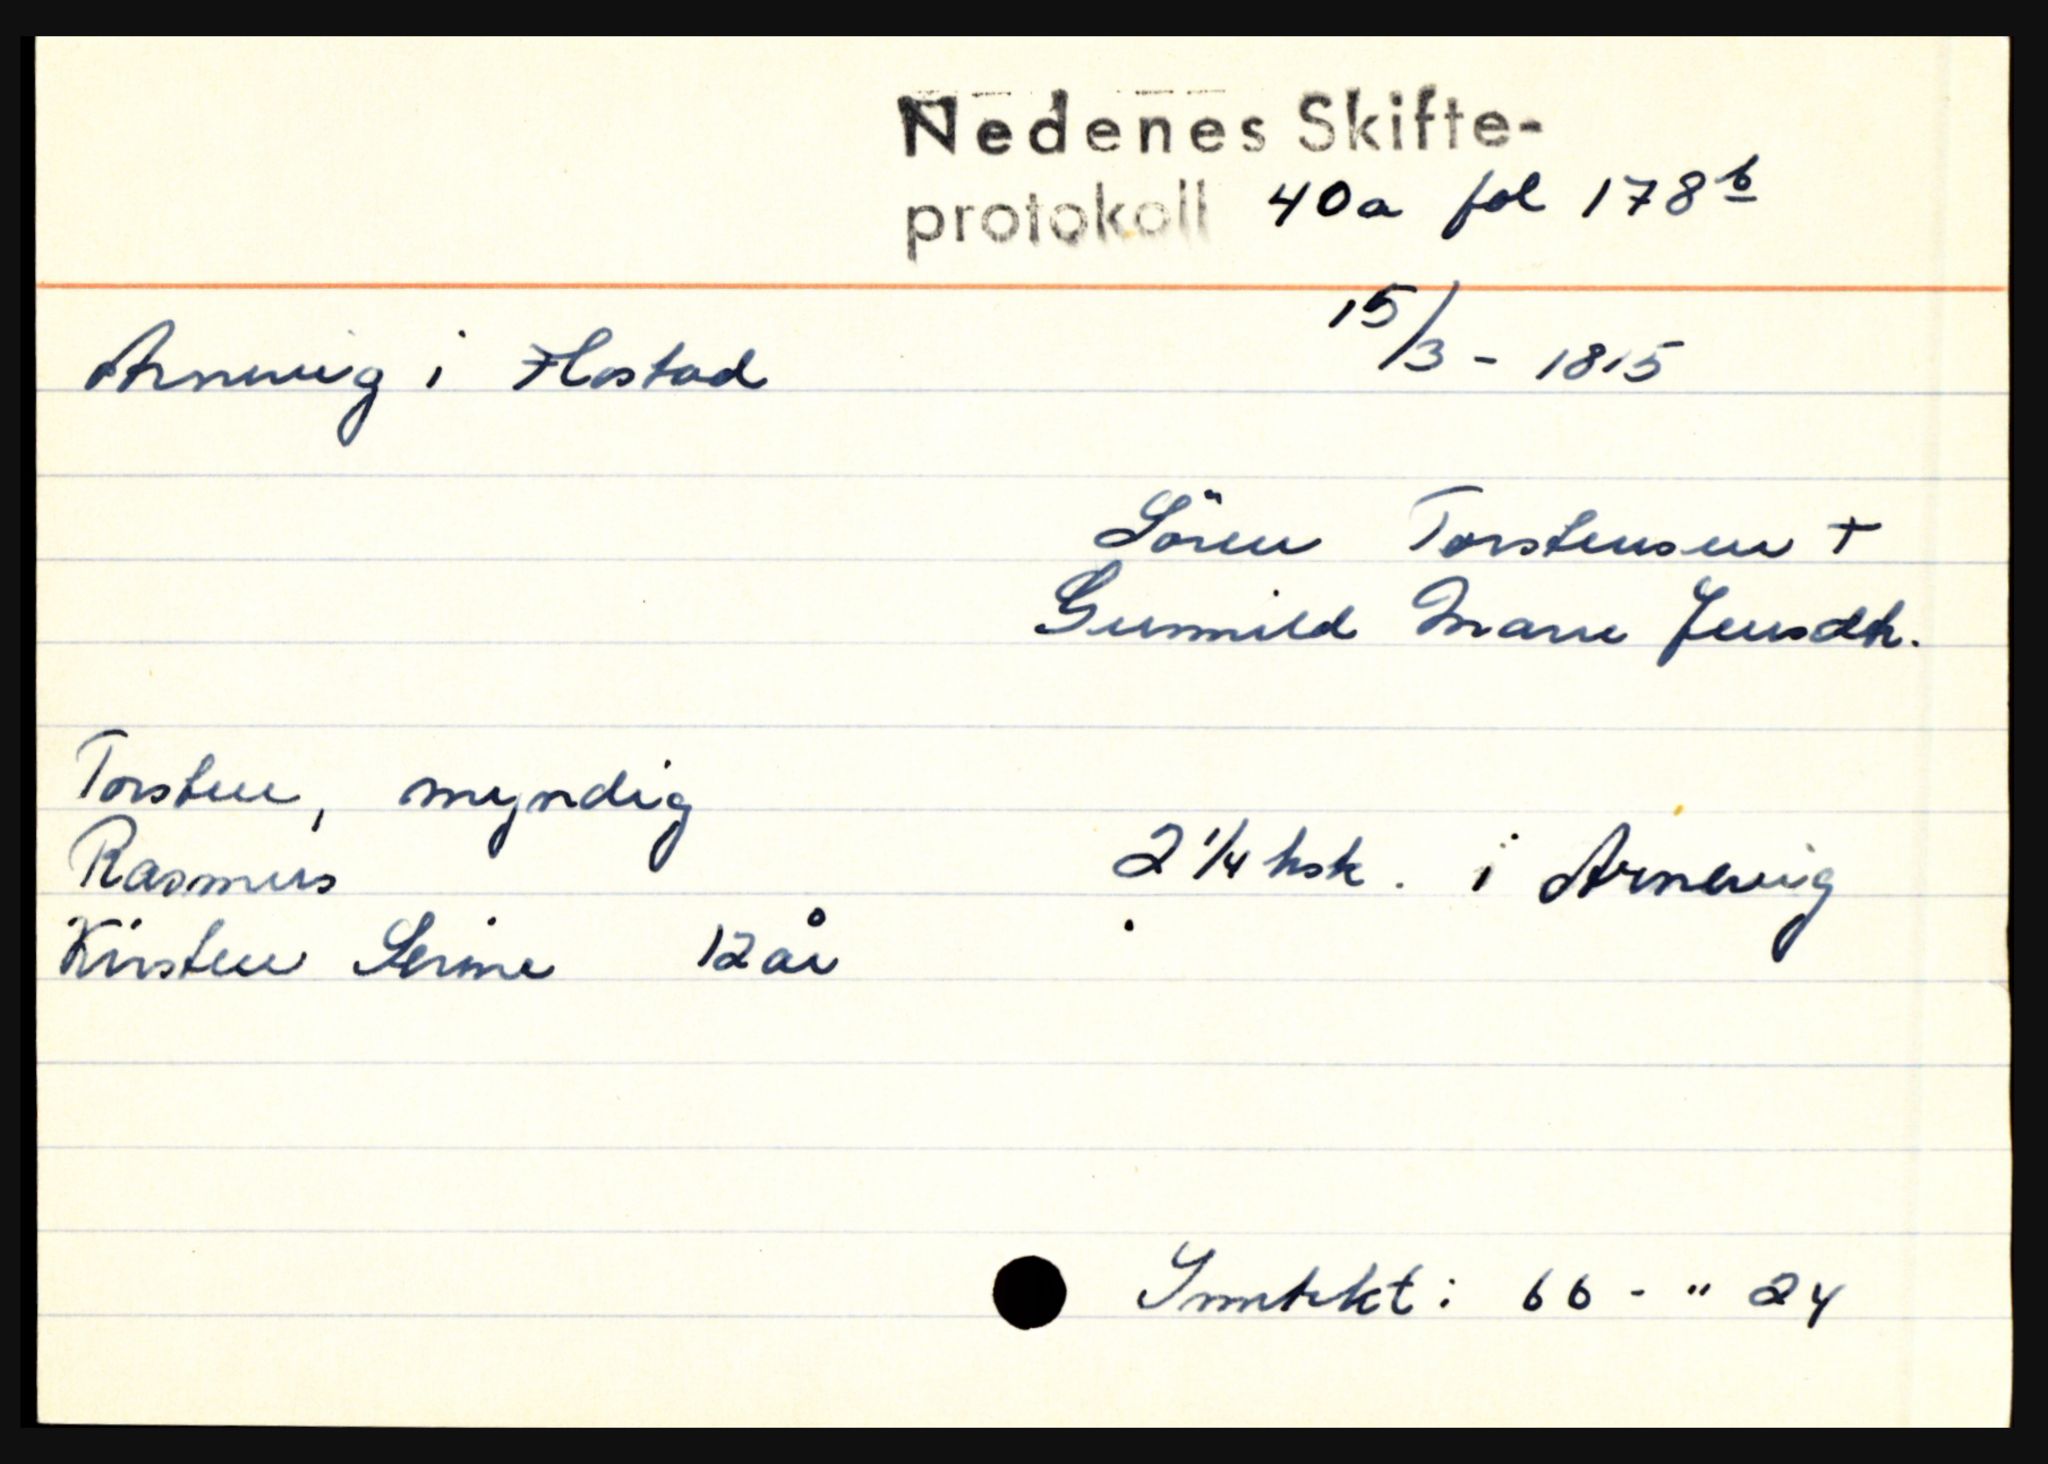 Nedenes Skifte-
protokoll 40a fol 178b
Arnevig i Flostad 15/3 - 1815
Sören Torstensen +
Gunnild Marie Jensdtr.
Torsten, myndig
Rasmus 2 1/4 hsk. i Arnevig
Kirsten Serine 12 år
Inntekt: 66 - " 24